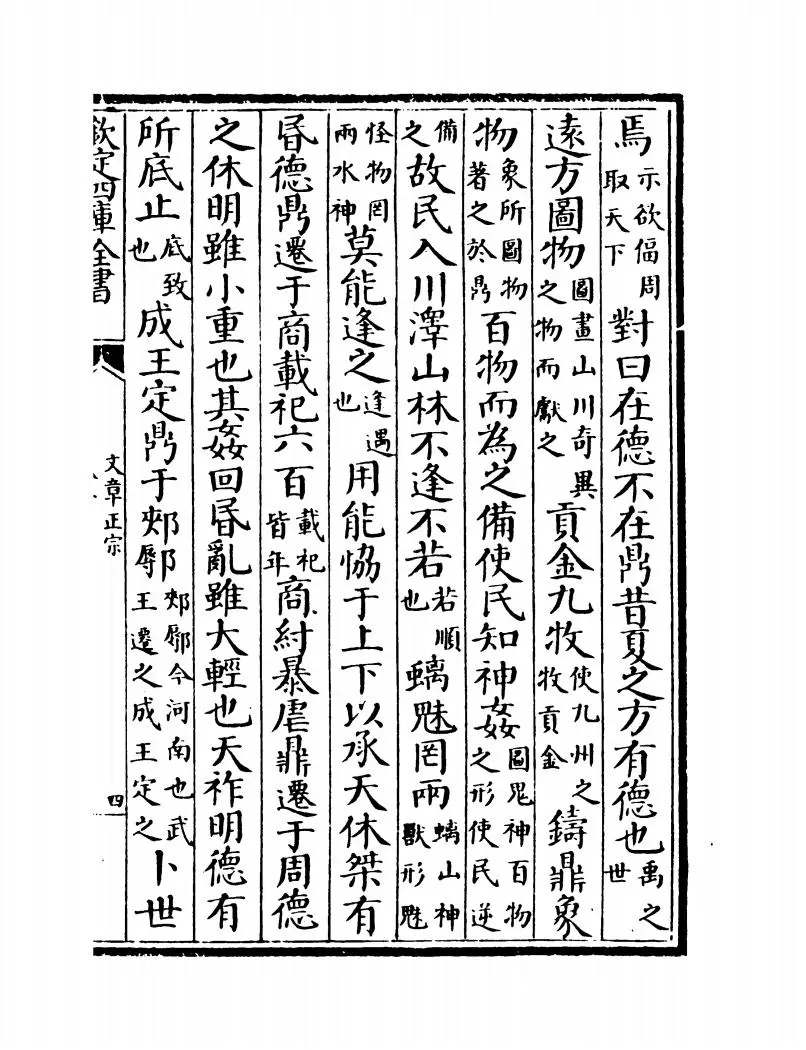 焉示欲偪周取天下對曰在德不在鼎昔夏之方有德也禹之世
遠方圖物圖畫山川奇異之物而獻之貢金九牧使九州之牧貢金鑄鼎象
物象所圖物著之於鼎百物而為之備使民知神姦圖鬼神百物之形使民逆
備之故民入川澤山林不逢不若若順也螭魅罔兩螭山神獸形魅
怪物罔兩水神莫能逢之逢遇也用能恊于上下以承天休桀有
昬德鼎遷于商載祀六百載祀皆年商紂暴虐鼎遷于周德
之休明雖小重也其姦回昬亂雖大輕也天祚明德有
所底止底致也成王定鼎于郟鄏郟鄏今河南也武王遷之成王定之卜世
欽定四庫全書
文章正宗
四